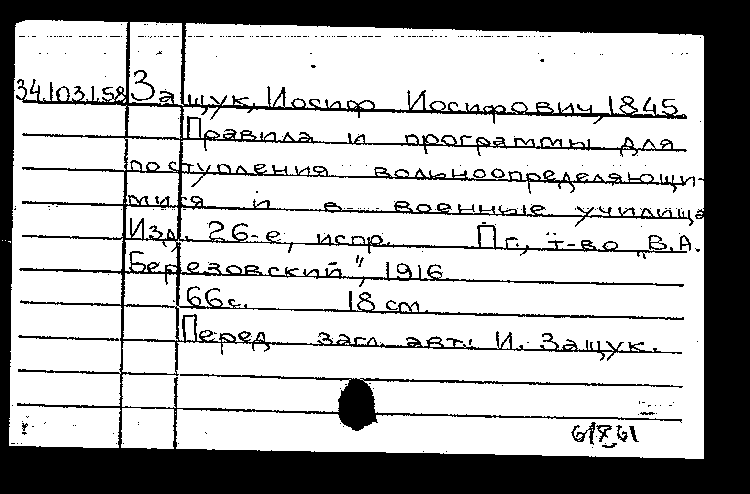 34.103.1.58 Защук, Иосиф Иосифович, 1845.
Правила и программы для
поступления вольноопределяющи-
мися и в военные училища
Изд. 26-е, испр. Пг., т-во „В.А.
Березовский", 1916.
66с. 18 см.
Перед загл. авт.: И. Защук.